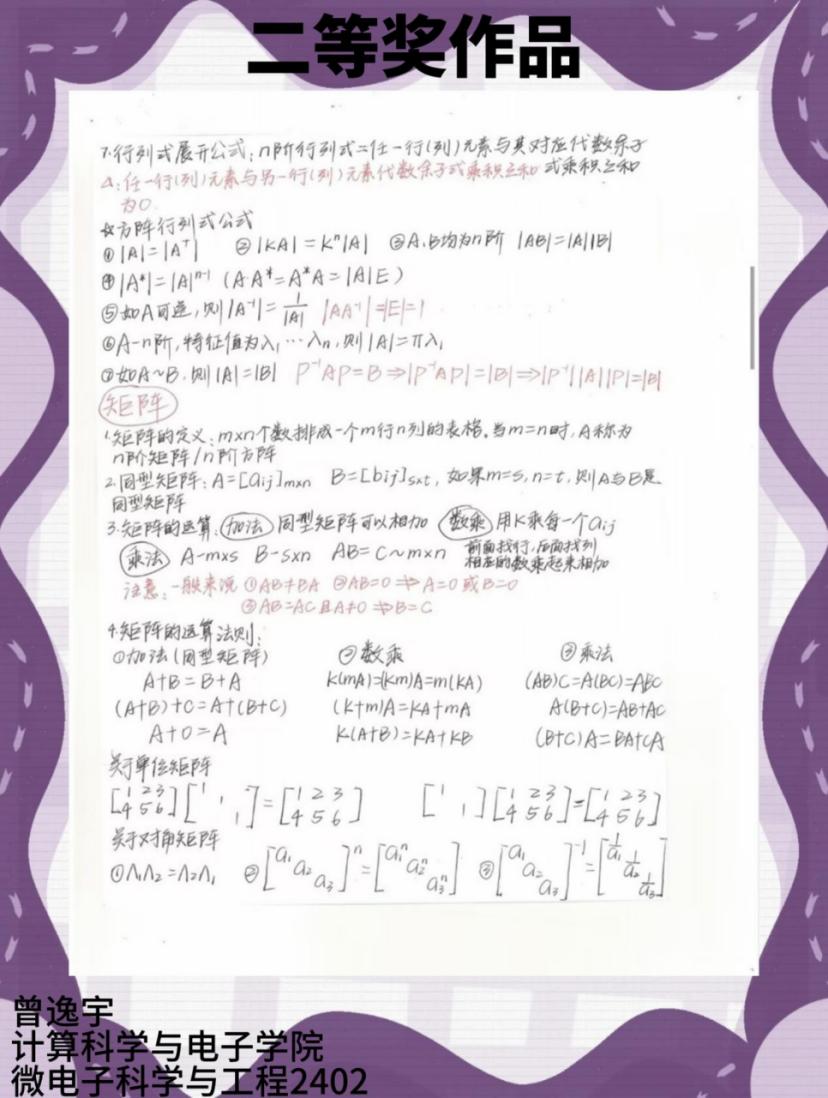 二等奖作品
7.行列式展开公式:n阶行列式=任一行(列)元素与其对应代数余子
式乘积之和
△:任一行(列)元素与另一行(列)元素代数余子式乘积之和
为0.
☆方阵行列式公式
①|A|=|Aᵀ| ②|KA|=Kⁿ|A| ③A、B均为n阶 |AB|=|A||B|
④|A*|=|A|ⁿ⁻¹ (A·A*=A*A=|A|E)
⑤如A可逆,则|A⁻¹|=1/|A| |AA⁻¹|=|E|=1
⑥A-n阶,特征值为λ₁…λn,则|A|=πλ₁
⑦如A~B,则|A|=|B| P⁻¹AP=B⇒|P⁻¹AP|=|B|⇒|P⁻¹||A||P|=|B|
矩阵
1.矩阵的定义:m×n个数排成一个m行n列的表格。当m=n时,A称为
n阶矩阵/n阶方阵
2.同型矩阵:A=[aij]m×n B=[bij]s×t,如果m=s,n=t,则A与B是
同型矩阵
3.矩阵的运算:加法 同型矩阵可以相加 数乘 用K乘每一个aij
乘法 A-m×s B-s×n AB=C~m×n 前面找行,后面找列
相应的数乘起来相加
注意:一般来说 ①AB≠BA ②AB=0⇏A=0或B=0
③AB=AC且A≠0⇏B=C
4.矩阵的运算法则:
①加法(同型矩阵) ②数乘 ③乘法
A+B=B+A K(mA)=(Km)A=m(KA) (AB)C=A(BC)=ABC
(A+B)+C=A+(B+C) (K+m)A=KA+mA A(B+C)=AB+AC
A+0=A K(A+B)=KA+KB (B+C)A=BA+CA
关于单位矩阵
[1 2 3 [1 ]=[1 2 3] [1 ][1 2 3]=[1 2 3]
4 5 6] 1 1 4 5 6 1 4 5 6 4 5 6
关于对角矩阵
①Λ₁Λ₂=Λ₂Λ₁ ②[a₁ a₂ a₃]ⁿ=[a₁ⁿ a₂ⁿ a₃ⁿ] ③[a₁ a₂ a₃]⁻¹=[1/a₁ 1/a₂ 1/a₃]
曾逸宇
计算科学与电子学院
微电子科学与工程2402